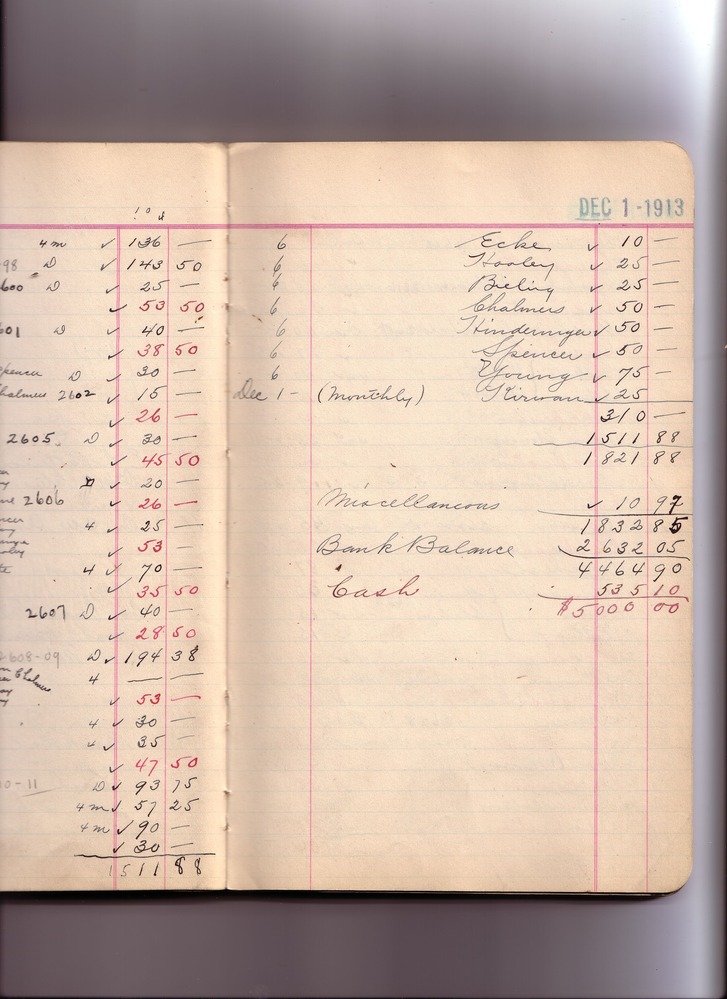 4m ✓ 136 —
98 D ✓ 143 50
600 D ✓ 25 —
✓ 53 50
601 D ✓ 40 —
✓ 38 50
D ✓ 30 —
halmers 2602 ✓ 15 —
✓ 26 —
2605 D ✓ 30 —
✓ 45 50
D ✓ 20 —
2606 ✓ 26 —
4 ✓ 25 —
✓ 53 —
4 ✓ 70 —
✓ 35 50
2607 D ✓ 40 —
✓ 28 50
2608-09 D ✓ 194 38
Chalmers 4 — —
✓ 53 —
4 ✓ 30 —
4 ✓ 35 —
✓ 47 50
0-11 D ✓ 93 75
4m ✓ 57 25
4m ✓ 90 —
✓ 30 —
1511 88
DEC 1-1913
6 Ecke ✓ 10 —
6 Hooley ✓ 25 —
6 Bieling ✓ 25 —
6 Chalmers ✓ 50 —
6 Hindermyer ✓ 50 —
6 Spencer ✓ 50 —
6 Young ✓ 75 —
Dec 1 - (Monthly) Kirwan ✓ 25
310 —
1511 88
1821 88
Miscellaneous ✓ 10 97
1832 85
Bank Balance 2632 05
4464 90
Cash 535 10
$5000 00